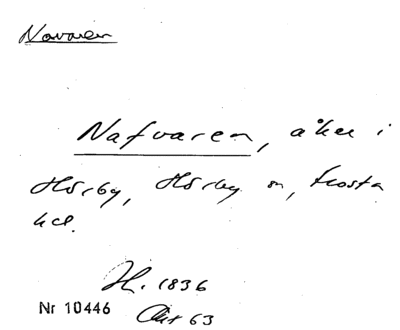 Navaren
Nafvaren, åker i
Hörby, Hörby sn, Frosta
hd.
H. 1836
Nr 10446 Akt 63